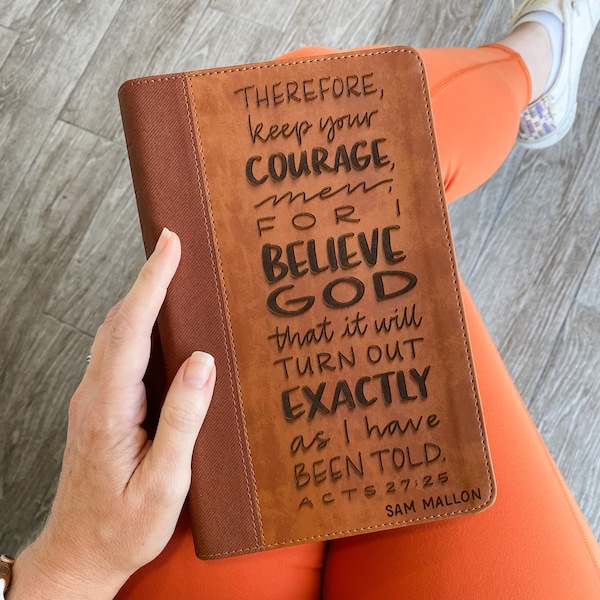 THEREFORE,
keep your
COURAGE,
men,
FOR I
BELIEVE
GOD
that it will
TURN OUT
EXACTLY
as I have
BEEN TOLD.
ACTS 27:25
SAM MALLON